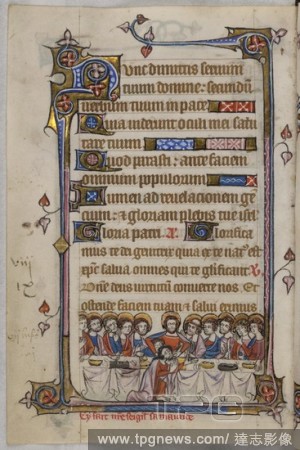 Nunc dimittis seruum
tuum domine: secundum
uerbum tuum in pace
Quia uiderunt oculi mei salu
tare tuum
Quod parasti: ante faciem
omnium populorum
Lumen ad reuelacionem ge
cium: & gloriam plebis tue isrl
Gloria patri. Glorifica
mus te dei genitrix quia ex te nat' est
xpc salua omnes qui te glificant V
Dne deus uirtutū conuerte nos. Et
ostende faciem tuam & salui erimus
TPG
www.tpgnews.com / 達志影像